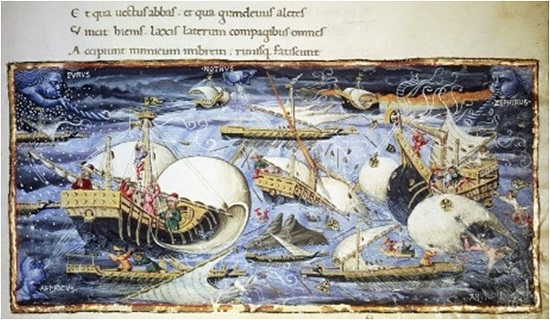 E t qua uectus abbas . et qua grandeuus aletes
V incit hiems . laxis laterum compagibus omnes
A ccipiunt inimicum imbrem ; rimisq. fatiscunt
EVRVS NOTHVS
ZEPHIRVS.
AFFRICVS.